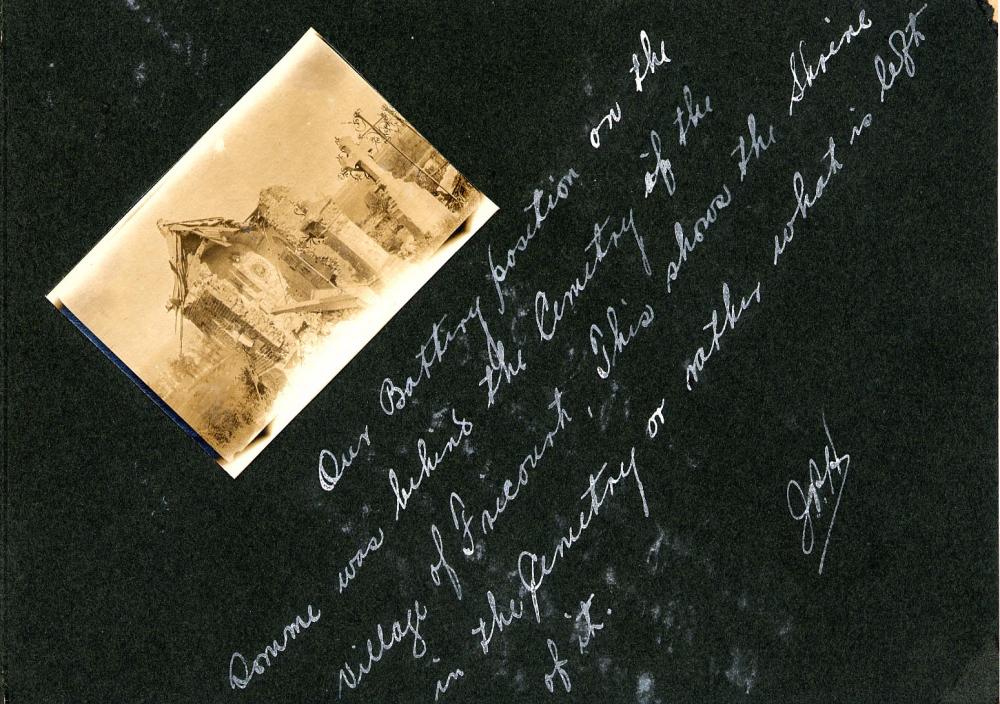 Our Battery position on the
Somme was behind the Cemetry of the
Village of Frecourt. This shows the Shrine
in the Cemetry or rather what is left
of it.
JPH